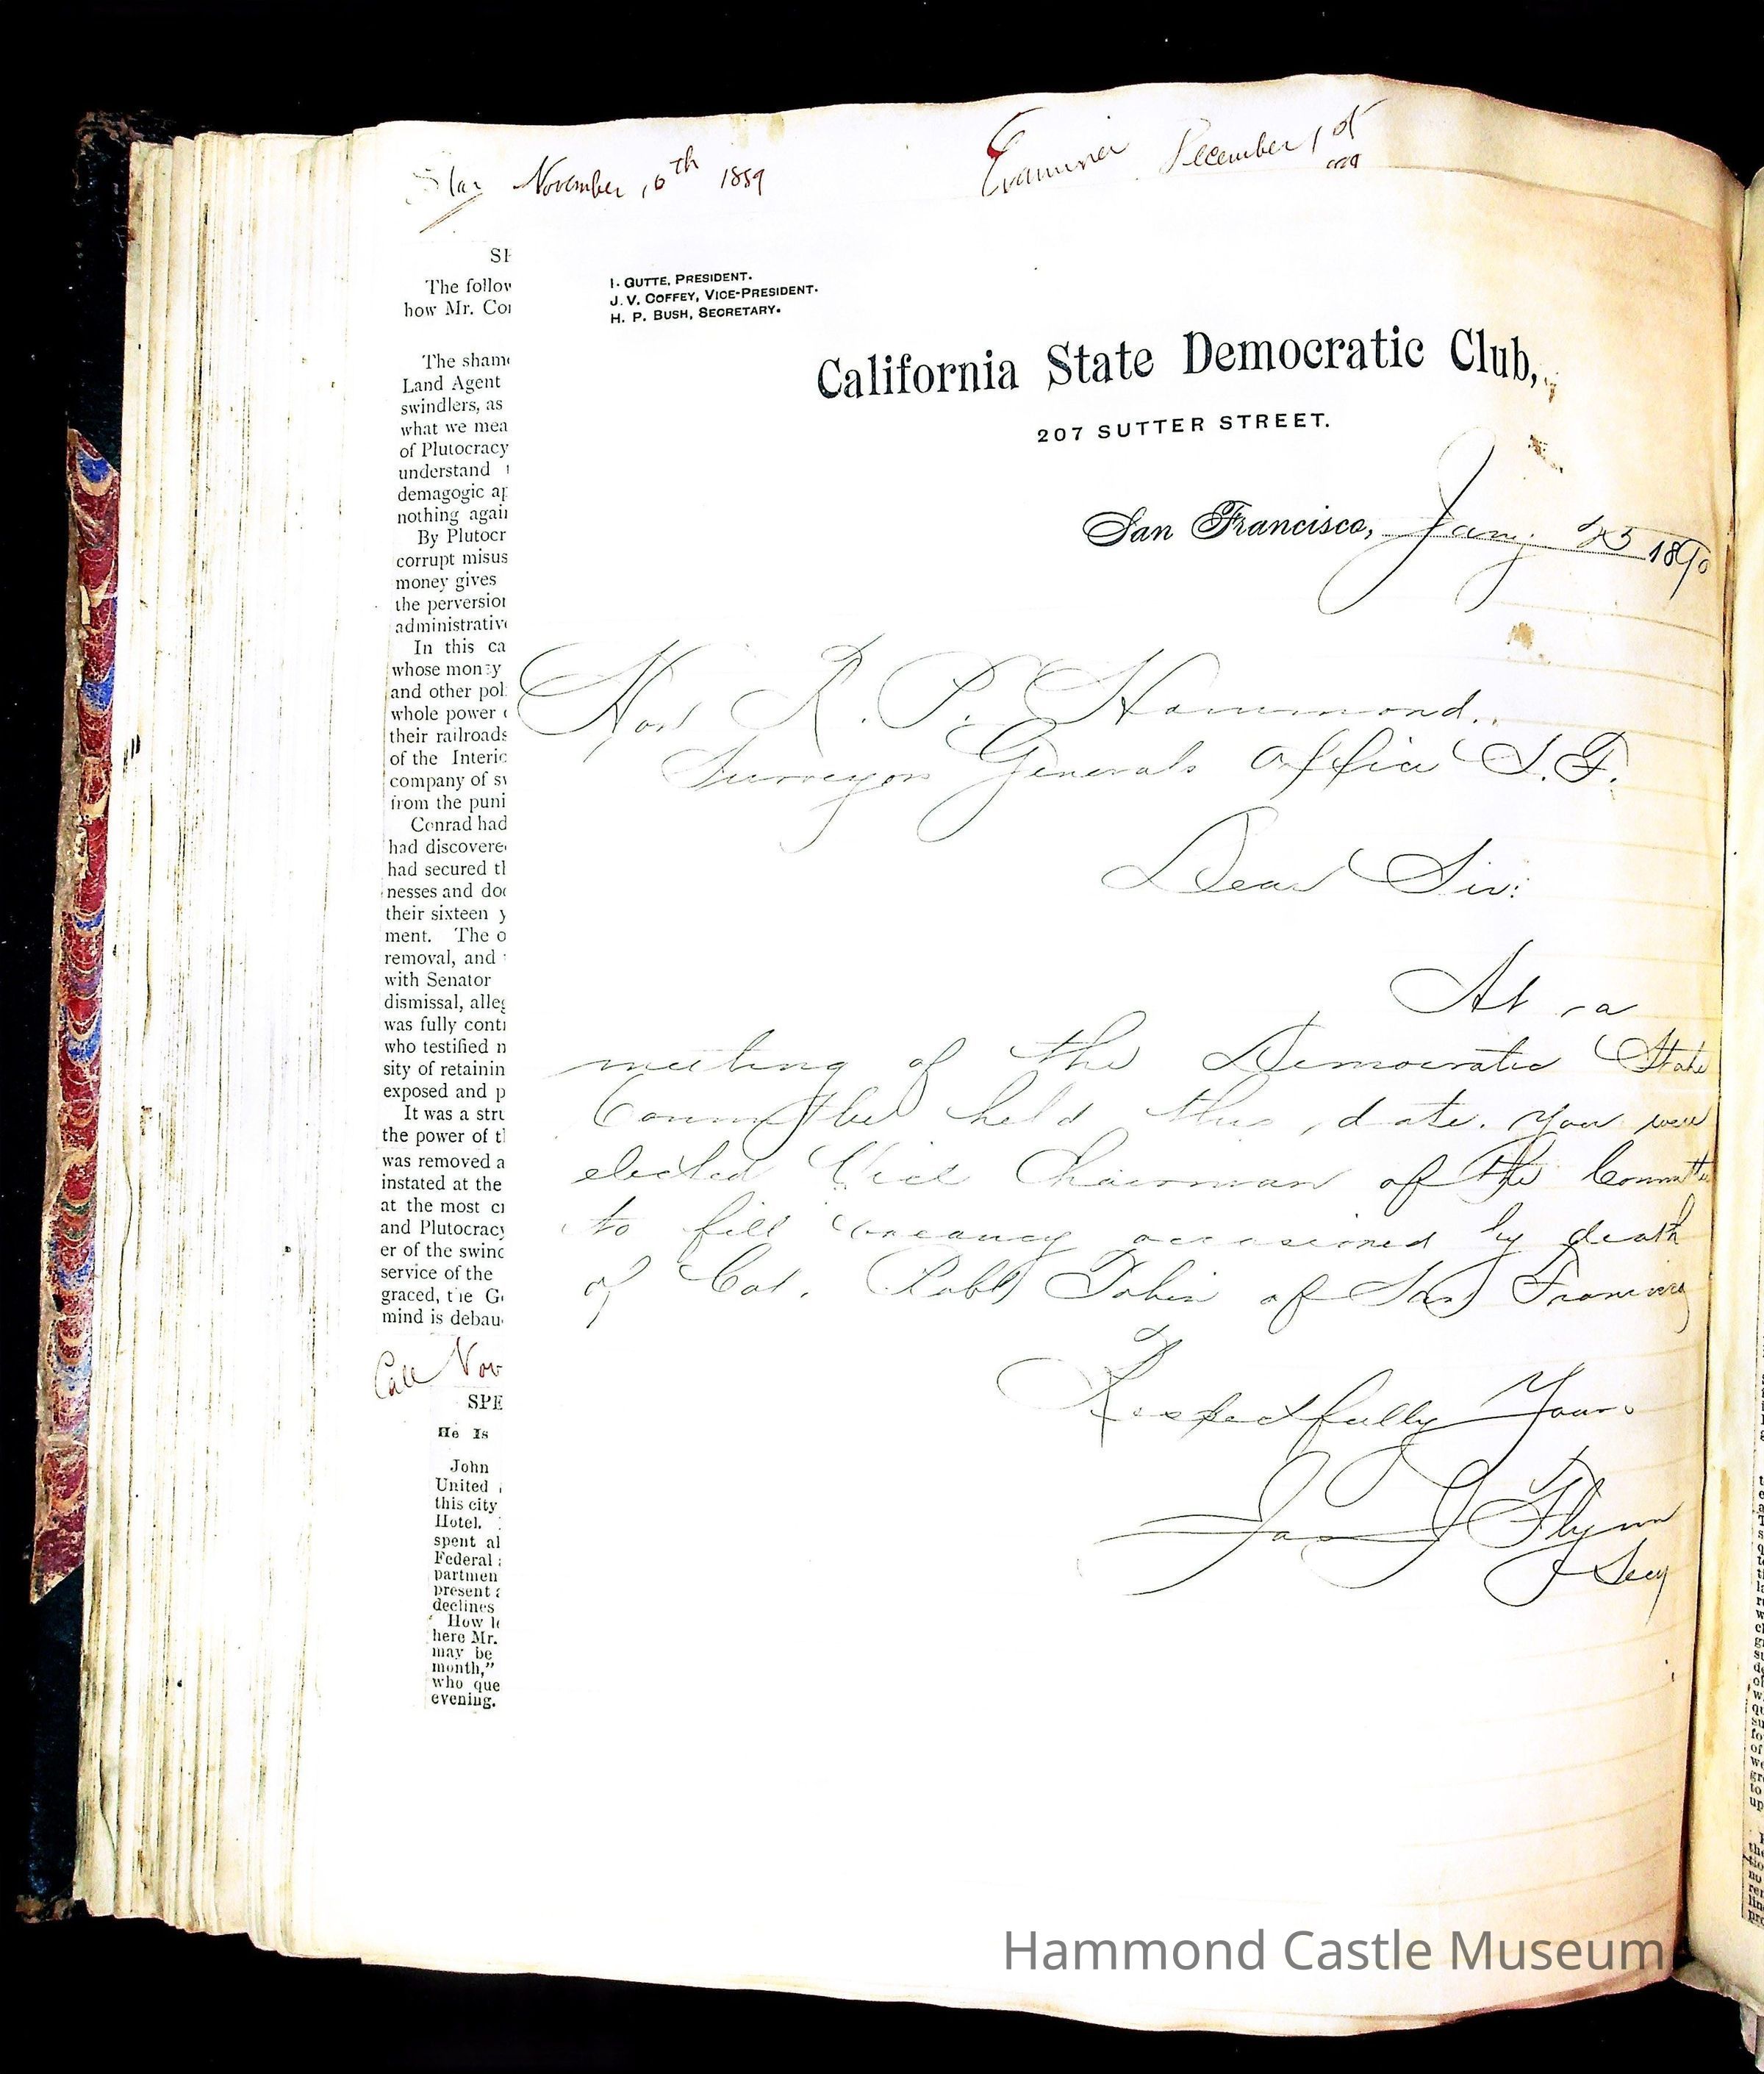 Star November 10th 1889
Examiner December 1st
1889
The follow
how Mr. Con
The shame
Land Agent
swindlers, as
what we mea
of Plutocracy
understand
demagogic ap
nothing again
By Plutocr
corrupt misus
money gives
the perversion
administrative
In this ca
whose money
and other pol
whole power
their railroads
of the Interio
company of sw
from the puni
Conrad had
had discovere
had secured th
nesses and doc
their sixteen y
ment. The o
removal, and
with Senator
dismissal, alleg
was fully contr
who testified n
sity of retainin
exposed and p
It was a stru
the power of t
was removed a
instated at the
at the most cr
and Plutocracy
er of the swind
service of the
graced, the G
mind is debau
Call Nov
SPE
He Is
John
United
this city
Hotel.
spent al
Federal
partmen
present
declines
How l
here Mr.
may be
month,"
who que
evening.
I. GUTTE, PRESIDENT.
J. V. COFFEY, VICE-PRESIDENT.
H. P. BUSH, SECRETARY.
California State Democratic Club,
207 SUTTER STREET.
San Francisco, Jany. 25 1890
Hon R. P. Hammond.
Surveyor Generals Office S.F.
Dear Sir:
At a
meeting of the Democratic State
Committee held this date. you were
elected Vice Chairman of the Committee
to fill vacancy occasioned by death
of Col. Robt Tobin of San Francisco
Respectfully Yours
Jas J Flynn
Secy
Hammond Castle Museum